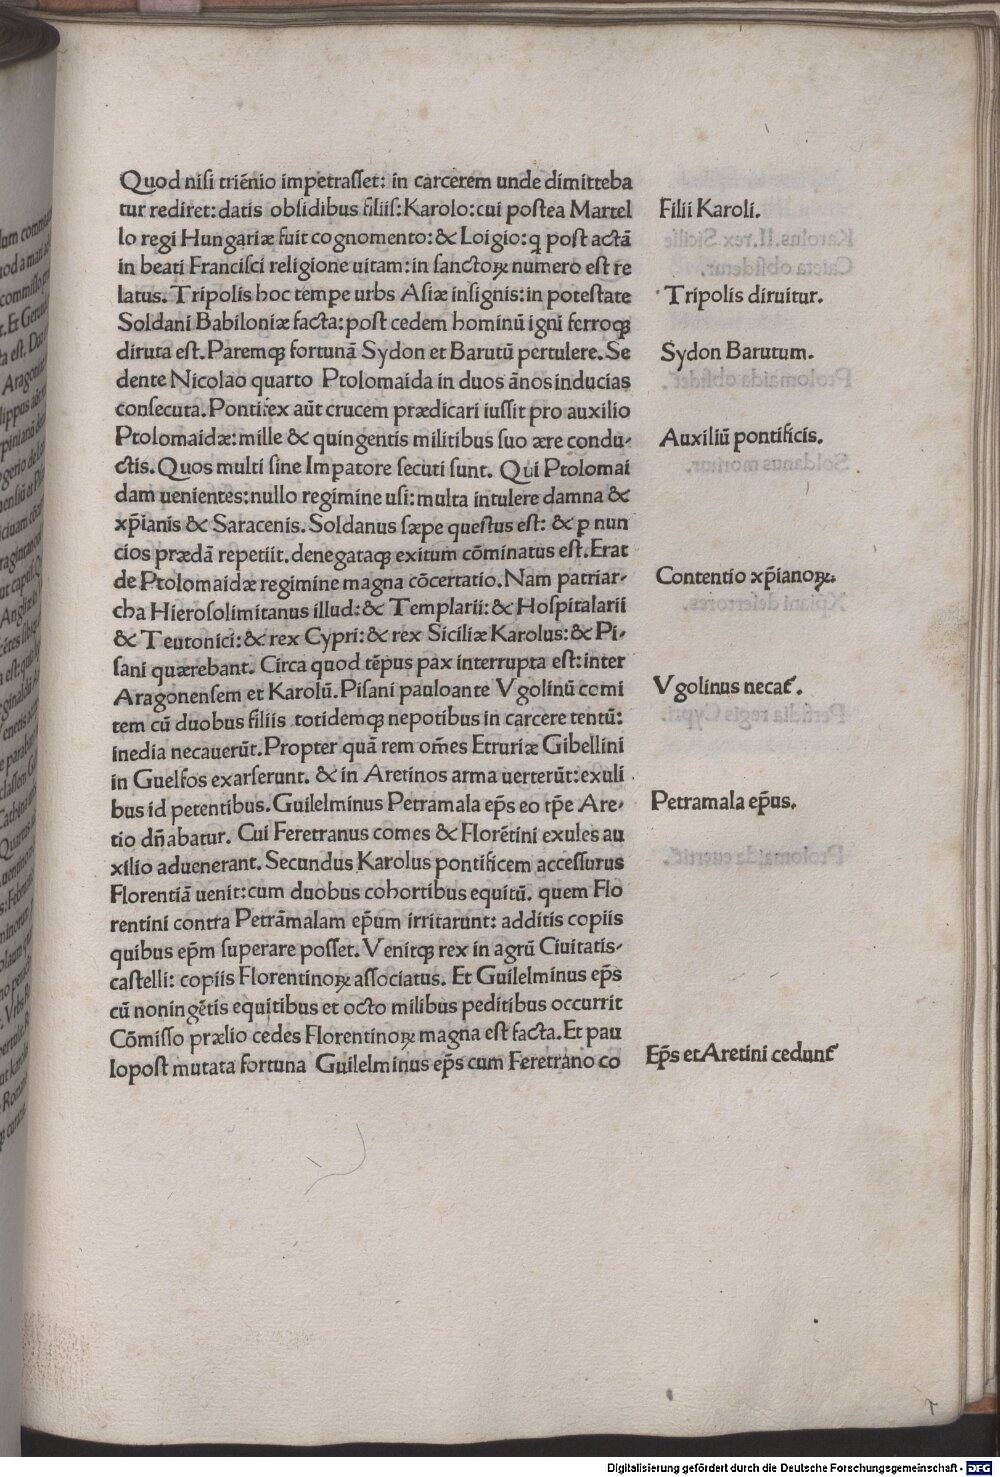 Quod nisi triēnio impetrasset: in carcerem unde dimitteba
tur rediret: datis obsidibus filiis: Karolo: cui postea Martel
lo regi Hungariæ fuit cognomento: & Loigio: q post actā
in beati Francisci religione uitam: in sanctoꝝ numero est re
latus. Tripolis hoc tempe urbs Asiæ insignis: in potestate
Soldani Babiloniæ facta: post cedem hominū igni ferroqꝫ
diruta est. Paremqꝫ fortunā Sydon et Barutū pertulere. Se
dente Nicolao quarto Ptolomaida in duos ānos inducias
consecuta. Pontifex aūt crucem prædicari iussit pro auxilio
Ptolomaidæ: mille & quingentis militibus suo ære condu-
ctis. Quos multi sine Impatore secuti sunt. Qui Ptolomai
dam uenientes: nullo regimine usi: multa intulere damna &
xp̄ianis & Saracenis. Soldanus sæpe questus est: & p nun
cios prædā repetiit. denegataqꝫ exitum cōminatus est. Erat
de Ptolomaidæ regimine magna cōcertatio. Nam patriar-
cha Hierosolimitanus illud: & Templarii: & Hospitalarii
& Teutonici: & rex Cypri: & rex Siciliæ Karolus: & Pi-
sani quærebant. Circa quod tēpus pax interrupta est: inter
Aragonensem et Karolū. Pisani pauloante Vgolinū comi
tem cū duobus filiis totidemqꝫ nepotibus in carcere tentū:
inedia necauerūt. Propter quā rem om̄es Etruriæ Gibellini
in Guelfos exarserunt. & in Aretinos arma uerterūt: exuli
bus id petentibus. Guilelminus Petramala ep̄s eo tp̄e Are-
tio dn̄abatur. Cui Feretranus comes & Florētini exules au
xilio aduenerant. Secundus Karolus pontificem accessurus
Florentiā uenit: cum duobus cohortibus equitū. quem Flo
rentini contra Petrāmalam ep̄um irritarunt: additis copiis
quibus ep̄m superare posset. Venitqꝫ rex in agrū Ciuitatis-
castelli: copiis Florentinoꝝ associatus. Et Guilelminus ep̄s
cū noningētis equitibus et octo milibus peditibus occurrit
Cōmisso prælio cedes Florentinoꝝ magna est facta. Et pau
lopost mutata fortuna Guilelminus ep̄s cum Feretrano co
Filii Karoli.
Tripolis diruitur.
Sydon Barutum.
Auxiliū pontificis.
Contentio xp̄ianoꝝ.
Vgolinus necat᷑.
Petramala ep̄us.
Ep̄s et Aretini cedunt᷑
Digitalisierung gefördert durch die Deutsche Forschungsgemeinschaft - DFG